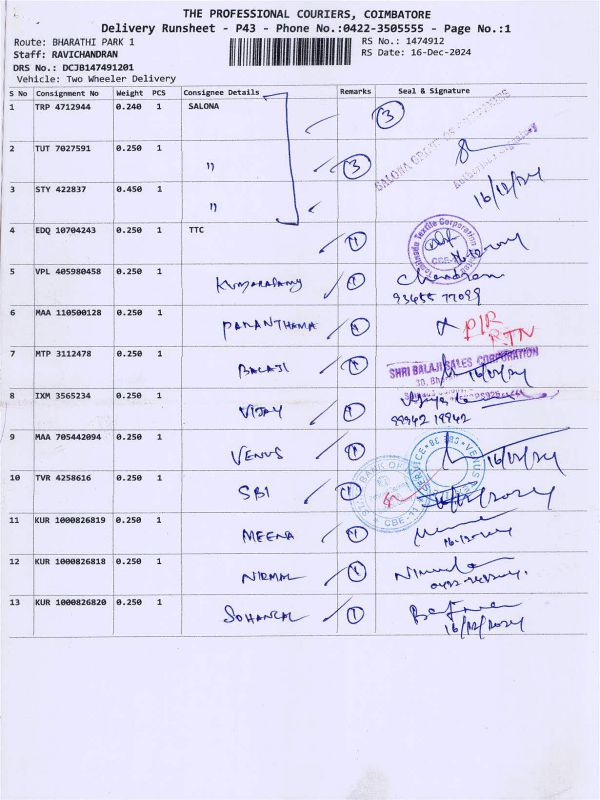 THE PROFESSIONAL COURIERS, COIMBATORE
Delivery Runsheet - P43 - Phone No.:0422-3505555 - Page No.:1
Route: BHARATHI PARK 1 RS No.: 1474912
Staff: RAVICHANDRAN RS Date: 16-Dec-2024
DRS No.: DCJB147491201
Vehicle: Two Wheeler Delivery
S No Consignment No Weight PCS Consignee Details Remarks Seal & Signature
1 TRP 4712944 0.240 1 SALONA 3
2 TUT 7027591 0.250 1 " 3
3 STY 422837 0.450 1 " 16/12/24
4 EDQ 10704243 0.250 1 TTC 1
5 VPL 405980458 0.250 1 KUMARASAMY 1 Chandran
93455 77099
6 MAA 110500128 0.250 1 PARANTHAMA 1 P/R
RTN
7 MTP 3112478 0.250 1 BALAJI 1 SHRI BALAJI SALES CORPORATION
8 IXM 3565234 0.250 1 VIJAY 1
99942 19942
9 MAA 705442094 0.250 1 VENUS 1 16/12/24
10 TVR 4258616 0.250 1 SBI 1 16/12/2024
11 KUR 1000826819 0.250 1 MEENA 1
16-12-2024
12 KUR 1000826818 0.250 1 NIRMAL 1
13 KUR 1000826820 0.250 1 SOHANLAL 1
16/12/2024